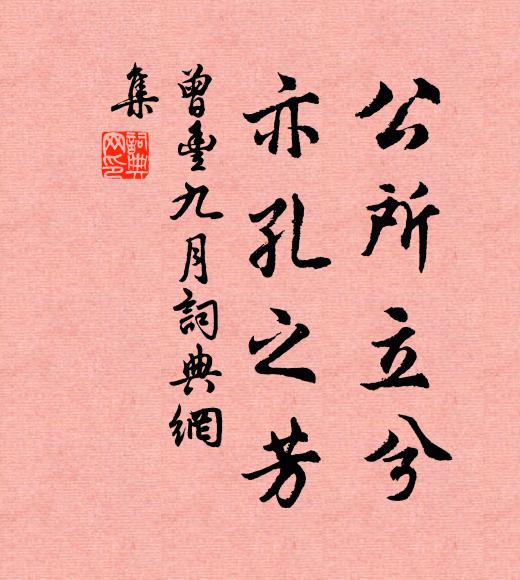 公所立兮
亦孔之芳
曾豐九月詞典網
集
詞典
网印